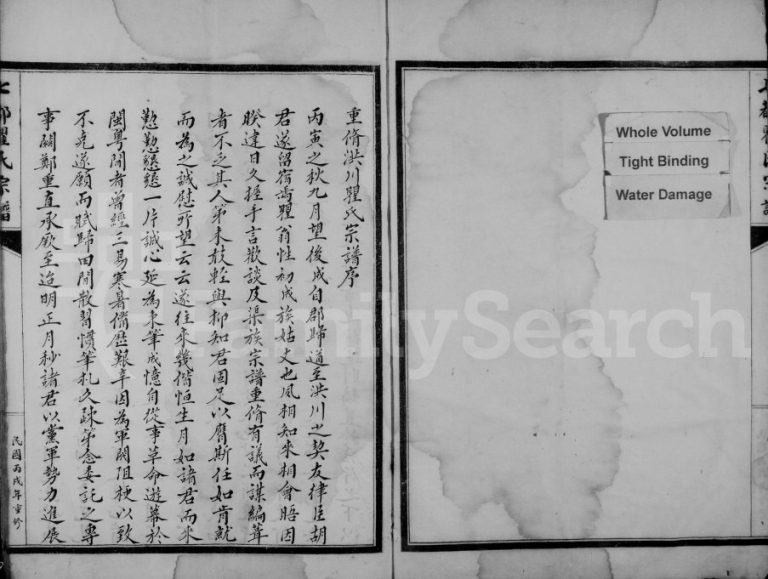 重脩洪川瞿氏宗譜序
丙寅之秋九月望後成自郡歸道至洪川之契友律臣胡
君遂留宿焉瞿翁性初成族姑丈也夙相知來相會晤因
睽違日久握手言歡談及渠族宗譜重脩有議而謀編葺
者不乏其人第未敢輕與抑知君固足以膺斯任如肯就
而為之誠慰所望云云遂往來幾偕恒生月如諸君而來
懃懃懇懇一片誠心延為東筆成憶自從事革命遊幕於
閩粵間者曾經三易寒暑備歷艱辛因為軍閥阻梗以致
不克遂願而賦歸田閒散習慣筆札久疎第念委託之專
事關鄭重直承厥至迨明正月杪諸君以黨軍勢力進展
民國丙戌年重修
七都瞿氏宗譜
Whole Volume
Tight Binding
Water Damage
FamilySearch